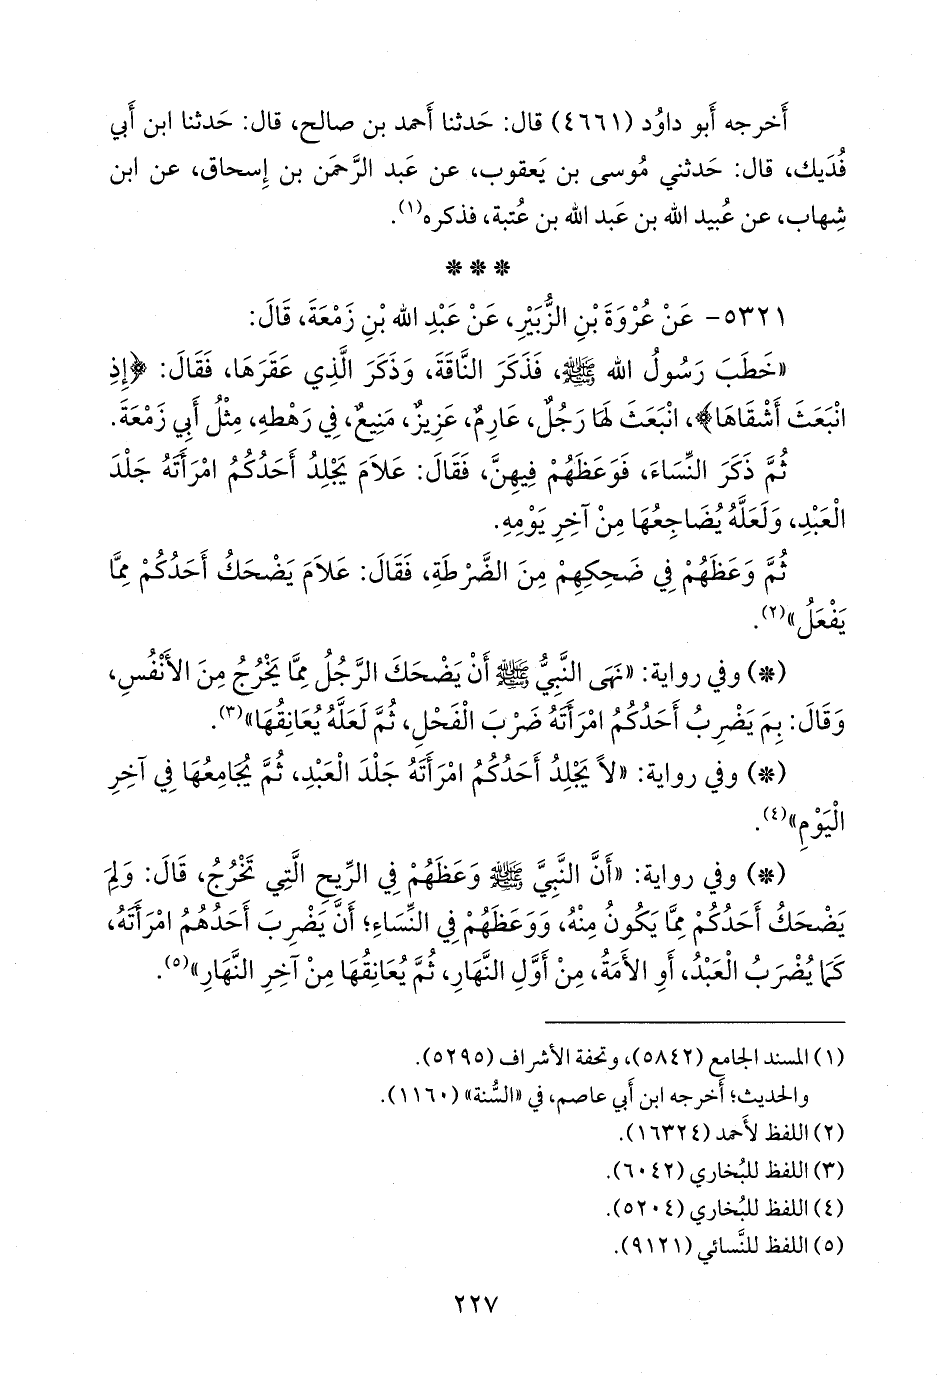 أَخرجه أَبو داوُد (٤٦٦١) قال: حَدثنا أَحمد بن صالح، قال: حَدثنا ابن أَبي
فُدَيك، قال: حَدثني مُوسى بن يَعقوب، عن عَبد الرَّحمَن بن إِسحاق، عن ابن
شِهاب، عن عُبيد الله بن عَبد الله بن عُتبة، فذكره(١).
* * *
٥٣٢١- عَنْ عُرْوَةَ بْنِ الزُّبَيْرِ، عَنْ عَبْدِ الله بْنِ زَمْعَةَ، قَالَ:
«خَطَبَ رَسُولُ الله ﷺ، فَذَكَرَ النَّاقَةَ، وَذَكَرَ الَّذِي عَقَرَهَا، فَقَالَ: ﴿إِذِ
انْبَعَثَ أَشْقَاهَا﴾، انْبَعَثَ لَهَا رَجُلٌ، عَارِمٌ، عَزِيزٌ، مَنِيعٌ، فِي رَهْطِهِ، مِثْلُ أَبِي زَمْعَةَ.
ثُمَّ ذَكَرَ النِّسَاءَ، فَوَعَظَهُمْ فِيهِنَّ، فَقَالَ: عَلاَمَ يَجْلِدُ أَحَدُكُمُ امْرَأَتَهُ جَلْدَ
الْعَبْدِ، وَلَعَلَّهُ يُضَاجِعُهَا مِنْ آخِرِ يَوْمِهِ.
ثُمَّ وَعَظَهُمْ فِي ضَحِكِهِمْ مِنَ الضَّرْطَةِ، فَقَالَ: عَلاَمَ يَضْحَكُ أَحَدُكُمْ مِمَّا
يَفْعَلُ»(٢).
(*) وفي رواية: «نَهَى النَّبِيُّ ﷺ أَنْ يَضْحَكَ الرَّجُلُ مِمَّا يَخْرُجُ مِنَ الأَنْفُسِ،
وَقَالَ: بِمَ يَضْرِبُ أَحَدُكُمُ امْرَأَتَهُ ضَرْبَ الْفَحْلِ، ثُمَّ لَعَلَّهُ يُعَانِقُهَا»(٣).
(*) وفي رواية: «لاَ يَجْلِدُ أَحَدُكُمُ امْرَأَتَهُ جَلْدَ الْعَبْدِ، ثُمَّ يُجَامِعُهَا فِي آخِرِ
الْيَوْمِ»(٤).
(*) وفي رواية: «أَنَّ النَّبِيَّ ﷺ وَعَظَهُمْ فِي الرِّيحِ الَّتِي تَخْرُجُ، قَالَ: وَلِمَ
يَضْحَكُ أَحَدُكُمْ مِمَّا يَكُونُ مِنْهُ، وَوَعَظَهُمْ فِي النِّسَاءِ؛ أَنْ يَضْرِبَ أَحَدُهُمُ امْرَأَتَهُ،
كَمَا يُضْرَبُ الْعَبْدُ، أَوِ الأَمَةُ، مِنْ أَوَّلِ النَّهَارِ، ثُمَّ يُعَانِقُهَا مِنْ آخِرِ النَّهَارِ»(٥).
(١) المسند الجامع (٥٨٤٢)، وتحفة الأشراف (٥٢٩٥).
والحديث؛ أَخرجه ابن أَبي عاصم، في «السُّنة» (١١٦٠).
(٢) اللفظ لأَحمد (١٦٣٢٤).
(٣) اللفظ للبُخاري (٦٠٤٢).
(٤) اللفظ للبُخاري (٥٢٠٤).
(٥) اللفظ للنَّسائي (٩١٢١).
٢٢٧